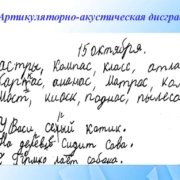 Артикуляторно-акустическая дисграф
15 октября.
астры, компас, класс, атла
ананас, матрас, ка
Мост, киоск, поднос, пылесо
У Васи серый котик.
На дереве сидит сова.
лает собака.